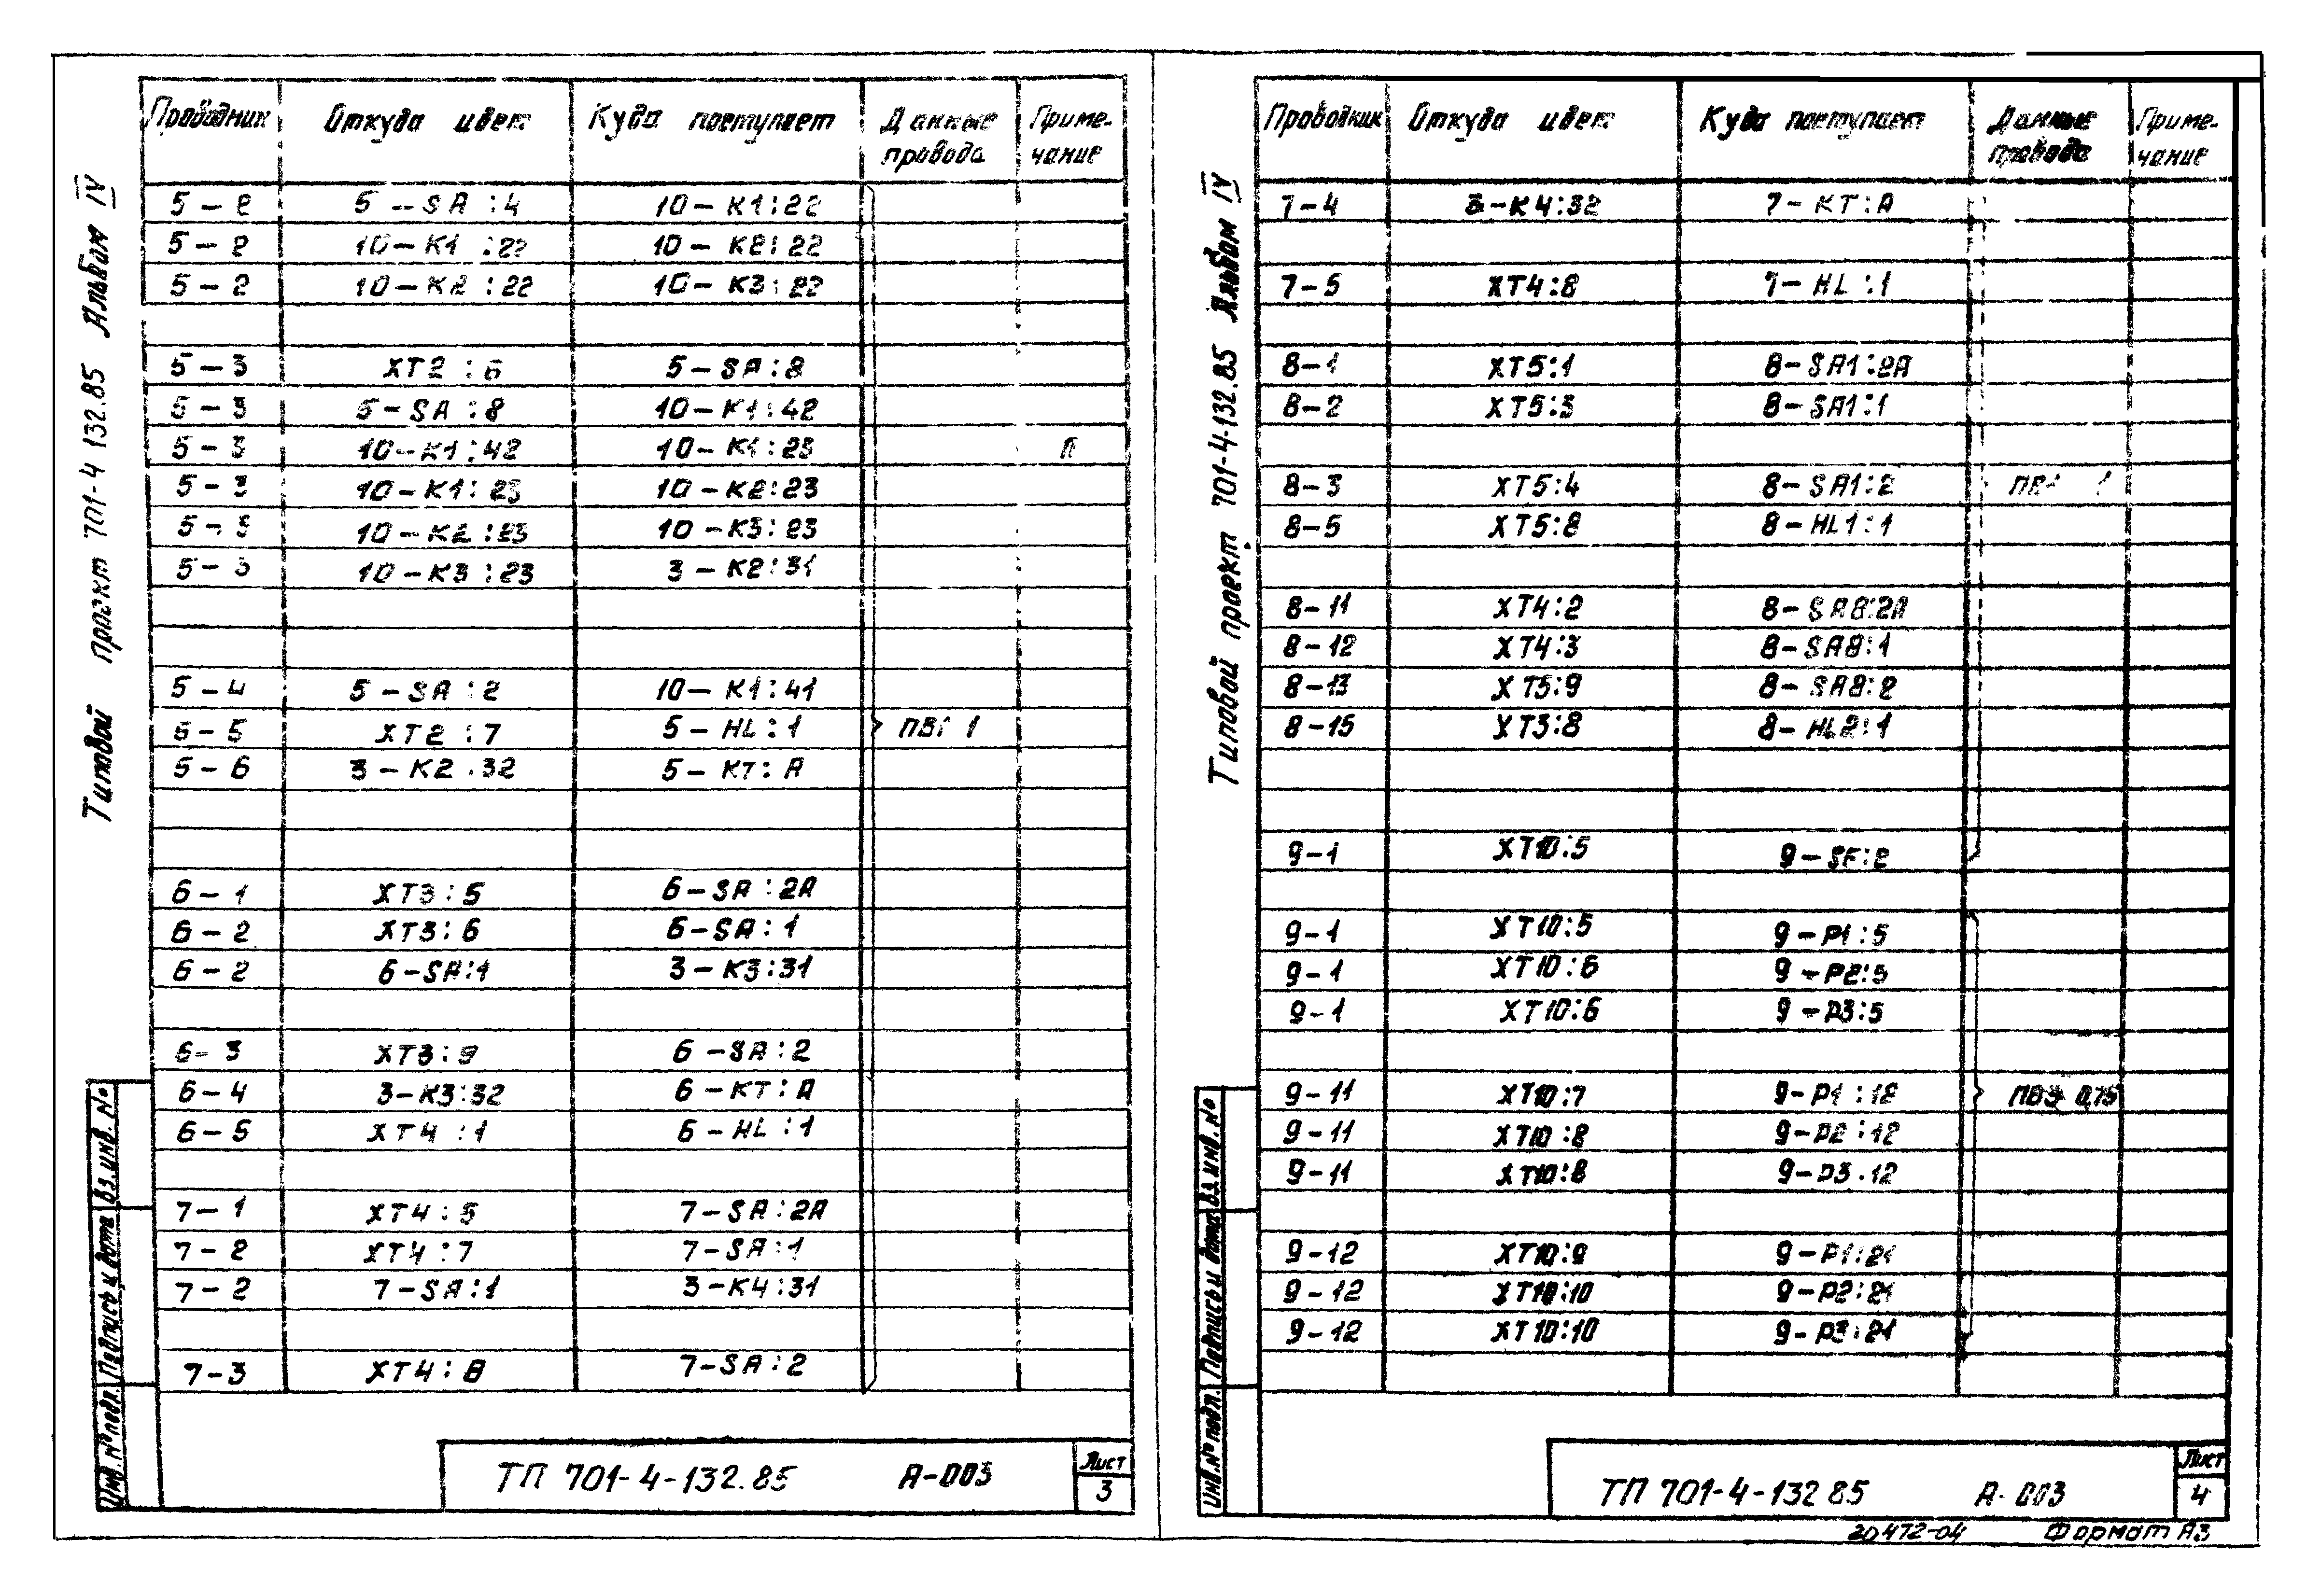 Типовой проект 701-4 132.85 Альбом IV
Проводник Откуда идет Куда поступает Данные провода Приме-чание
5-2 5-SA:4 10-K1:22
5-2 10-K1:22 10-K2:22
5-2 10-K2:22 10-K3:22
5-3 XT2:6 5-SA:8
5-3 5-SA:8 10-K1:42
5-3 10-K1:42 10-K1:23 П
5-3 10-K1:23 10-K2:23
5-3 10-K2:23 10-K3:23
5-3 10-K3:23 3-K2:31
5-4 5-SA:2 10-K1:41
5-5 XT2:7 5-HL:1 ПВ1 1
5-6 3-K2:32 5-KT:A
6-1 XT3:5 6-SA:2A
6-2 XT3:6 6-SA:1
6-2 6-SA:1 3-K3:31
6-3 XT3:9 6-SA:2
6-4 3-K3:32 6-KT:A
6-5 XT4:1 6-HL:1
7-1 XT4:5 7-SA:2A
7-2 XT4:7 7-SA:1
7-2 7-SA:1 3-K4:31
7-3 XT4:8 7-SA:2
Инв.№ подл. Подпись и дата Вз.инв.№
ТП 701-4-132.85 А-003 Лист 3
Типовой проект 701-4-132.85 Альбом IV
Проводник Откуда идет Куда поступает Данные провода Приме-чание
7-4 3-K4:32 7-KT:A
7-5 XT4:8 7-HL:1
8-1 XT5:1 8-SA1:2A
8-2 XT5:3 8-SA1:1
8-3 XT5:4 8-SA1:2
8-5 XT5:8 8-HL1:1
8-11 XT4:2 8-SA8:2A
8-12 XT4:3 8-SA8:1
8-13 XT5:9 8-SA8:2
8-15 XT3:8 8-HL2:1
9-1 XT10:5 9-SF:2
9-1 XT10:5 9-P1:5
9-1 XT10:6 9-P2:5
9-1 XT10:6 9-P3:5
9-11 XT10:7 9-P1:12 ПВ3 0,75
9-11 XT10:8 9-P2:12
9-11 XT10:8 9-P3:12
9-12 XT10:9 9-P1:21
9-12 XT10:10 9-P2:21
9-12 XT10:10 9-P3:21
Инв.№ подл. Подпись и дата Вз.инв.№
ТП 701-4-132 85 А-003 Лист 4
20472-04 Формат А3